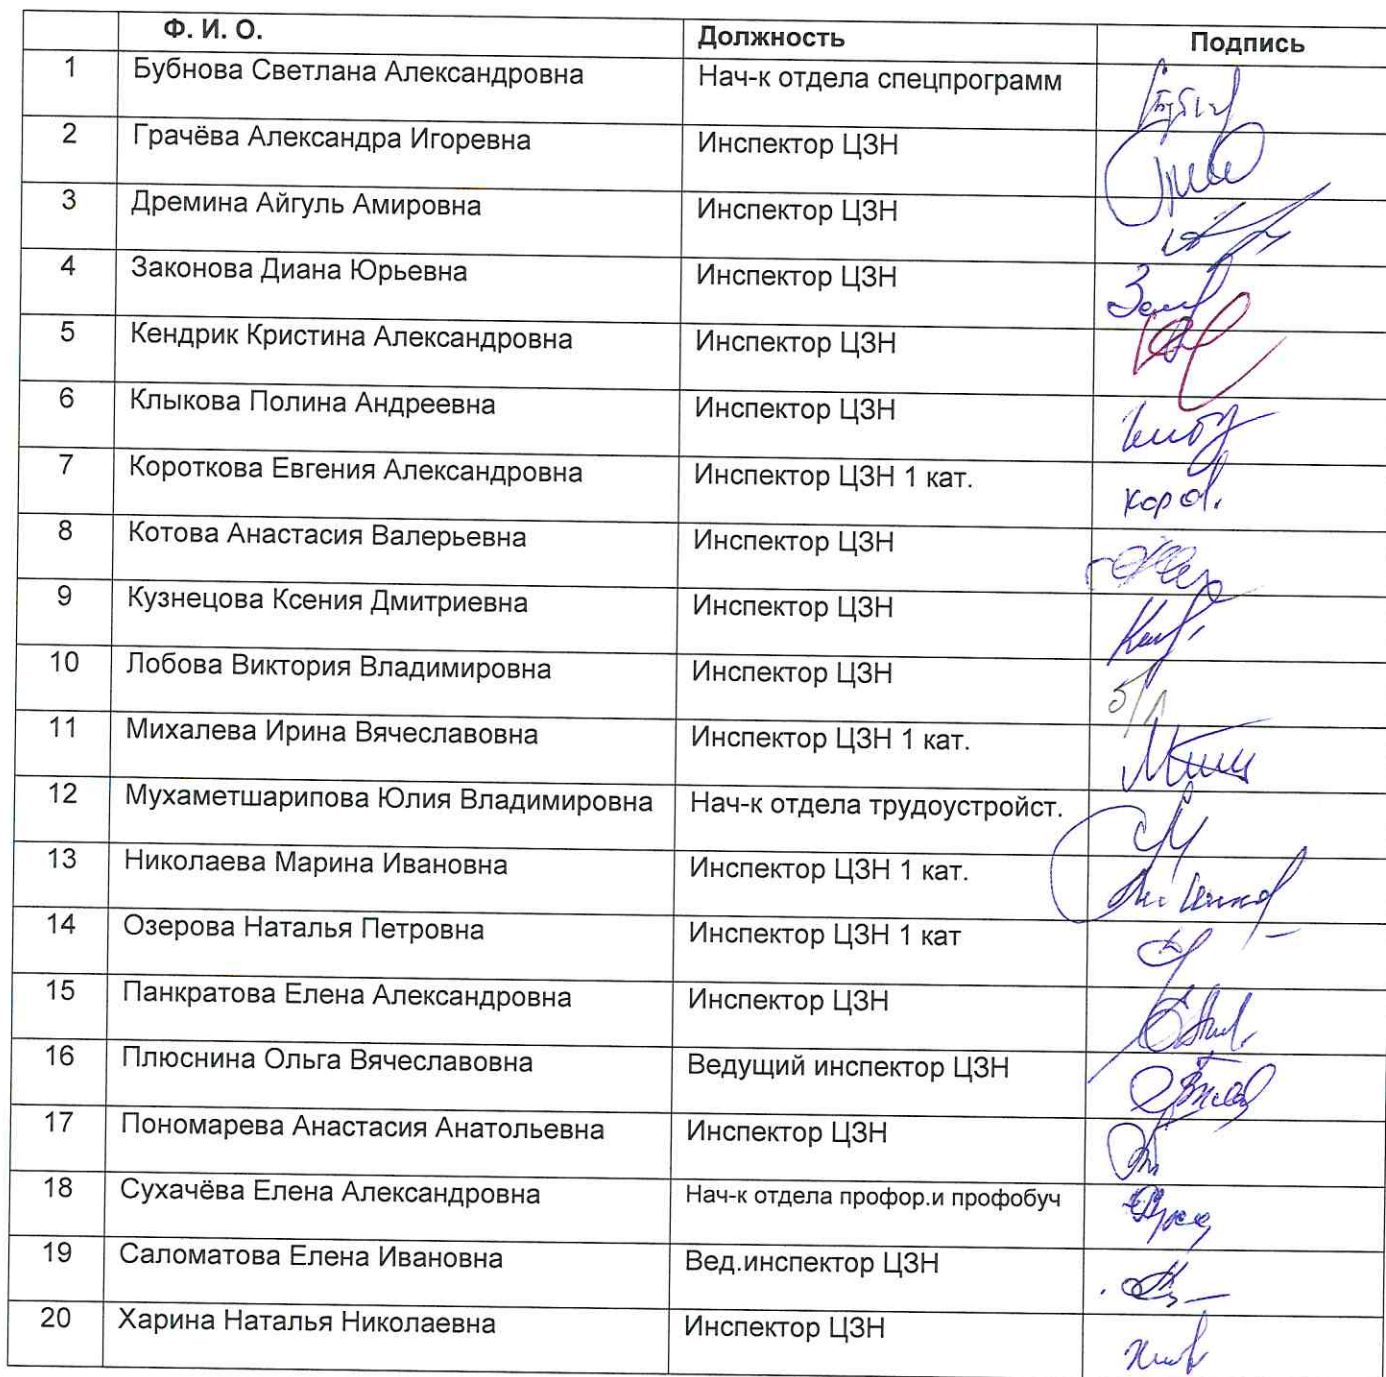 Ф. И. О. Должность Подпись
1 Бубнова Светлана Александровна Нач-к отдела спецпрограмм
2 Грачёва Александра Игоревна Инспектор ЦЗН
3 Дремина Айгуль Амировна Инспектор ЦЗН
4 Законова Диана Юрьевна Инспектор ЦЗН
5 Кендрик Кристина Александровна Инспектор ЦЗН
6 Клыкова Полина Андреевна Инспектор ЦЗН
7 Короткова Евгения Александровна Инспектор ЦЗН 1 кат.
8 Котова Анастасия Валерьевна Инспектор ЦЗН
9 Кузнецова Ксения Дмитриевна Инспектор ЦЗН
10 Лобова Виктория Владимировна Инспектор ЦЗН б/л
11 Михалева Ирина Вячеславовна Инспектор ЦЗН 1 кат.
12 Мухаметшарипова Юлия Владимировна Нач-к отдела трудоустройст.
13 Николаева Марина Ивановна Инспектор ЦЗН 1 кат.
14 Озерова Наталья Петровна Инспектор ЦЗН 1 кат
15 Панкратова Елена Александровна Инспектор ЦЗН
16 Плюснина Ольга Вячеславовна Ведущий инспектор ЦЗН
17 Пономарева Анастасия Анатольевна Инспектор ЦЗН
18 Сухачёва Елена Александровна Нач-к отдела профор.и профобуч
19 Саломатова Елена Ивановна Вед.инспектор ЦЗН
20 Харина Наталья Николаевна Инспектор ЦЗН